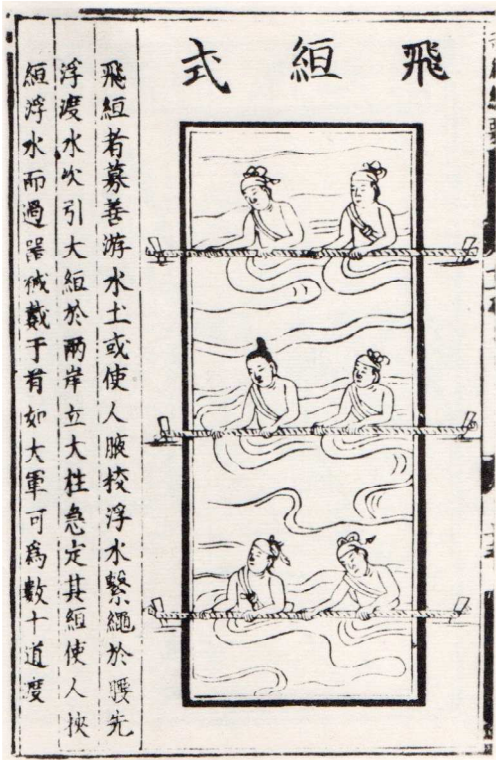 飛絙式
飛絙者募善游水土或使人腋挍浮水繫繩於腰先
浮渡水次引大絙於兩岸立大柱急定其絙使人挾
絙浮水而過器械戴于首如大軍可爲數十道度